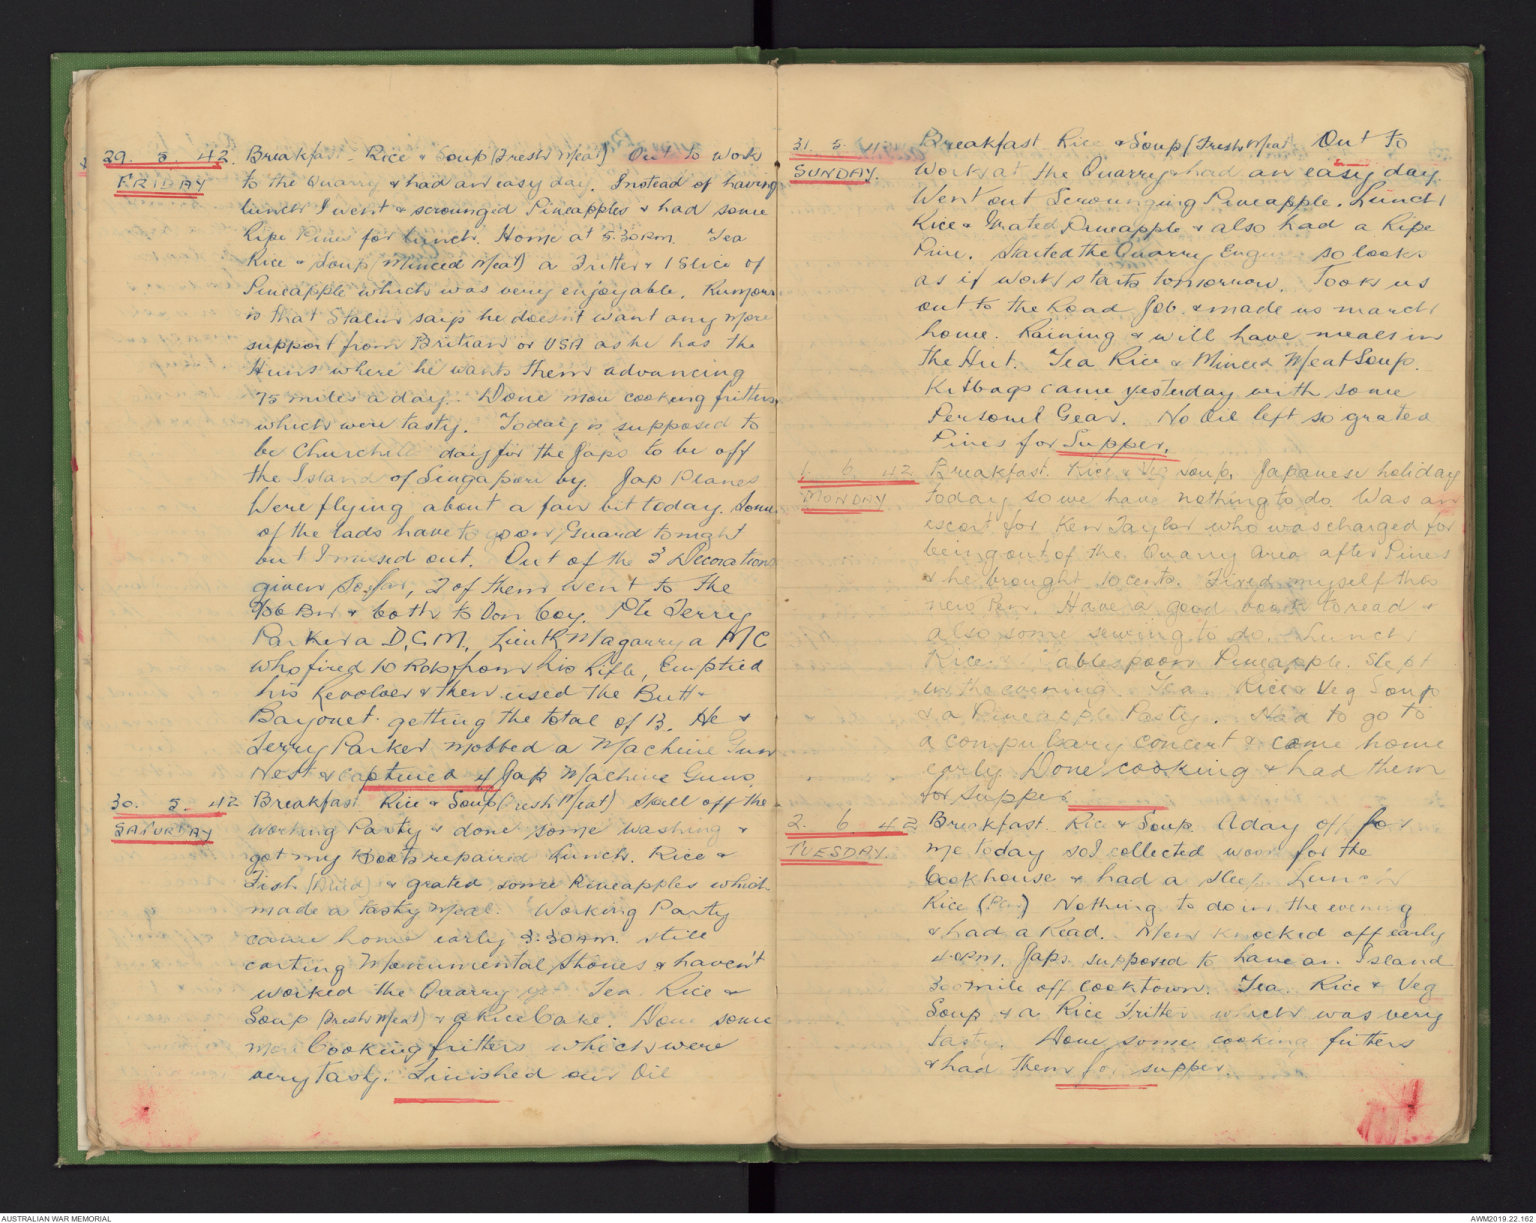 29. 5. 42. Breakfast - Rice & Soup (Fresh Meat) Out to work
FRIDAY to the Quarry & had an easy day. Instead of having
lunch I went & scroungid Pineapples & had some
Ripe Pines for lunch. Home at 5.30 P.m. Tea
Rice & Soup (Minced Meat) a Fritter & 1 Slice of
Pineapple which was very enjoyable. Rumour
is that Stalin says he doesn't want any more
support from Britian or USA as he has the
Huns where he wants them advancing
75 miles a day. Done more cooking fritters
which were tasty. Today is supposed to
be Churchill day for the Japs to be off
the Island of Singapore by. Jap Planes
Were flying about a fair bit today. Some
of the lads have to go on Guard tonight
but I missed out. Out of the 3 Decorations
given so far, 2 of them went to the
2/26 Bn & both to Don Coy. Pte Jerry
Parker a D.C.M, Lieut Magarry a MC
who fired 10 Rds from his Rifle, Emptied
his Revolver & then used the Butt &
Bayonet getting the total of 13. He &
Jerry Parker mobbed a Machine Gun
Nest & captured 4 Jap Machine Guns.
30. 5. 42 Breakfast Rice & Soup (Fresh Meat) Spell off the
SATURDAY working Party & done some washing &
got my Boots repaired Lunch. Rice &
Fish (Dried) & grated some Pineapples which
made a tasty Meal. Working Party
came home early 3.30 A.M. still
carting Monumental Stones & haven't
worked the Quarry yet Tea Rice &
Soup (Fresh Meat) & a Rice Cake. Done some
more Cooking fritters which were
very tasty. Finished our Oil
31. 5. Breakfast Rice & Soup (Fresh Meat Out to
SUNDAY. Work at the Quarry & had an easy day.
Went out Scrounging Pineapple. Lunch
Rice & Grated Pineapple & also had a Ripe
Pine. Started the Quarry Engine so looks
as if work starts tomorrow. Took us
out to the Road Job & made us march
home. Raining & will have meals in
the Hut. Tea Rice & Minced Meat Soup.
Kitbags came yesterday with some
Personel Gear. No Oil left so grated
Pines for Supper.
1. 6. 42 Breakfast. Rice & Veg soup. Japanese holiday
MONDAY today so we have nothing to do. Was an
escort for Ken Taylor who was charged for
being out of the Quarry Area after Pines
& he brought 10 cents. Fixed myself this
new Pen. Have a good book to read &
also some sewing to do. Lunch
Rice ablespoon Pineapple. Slept
in the evening Tea. Rice & Veg Soup
& a Pineapple Pasty. Had to go to
a compulsary concert & came home
early Done cooking & had them
for supper
2. 6. 42 Breakfast. Rice & Soup A day off for
TUESDAY. me today so I collected wood for the
Cookhouse & had a sleep Lunch
Rice (Pine) Nothing to do in the evening
& had a Read. Men knocked off early
4 P.m. Japs supposed to have an Island
300 mile off Cooktown. Tea. Rice & Veg
Soup & a Rice Fritter which was very
tasty. Done some cooking fritters
& had them for supper
AUSTRALIAN WAR MEMORIAL
AWM2019.22.162